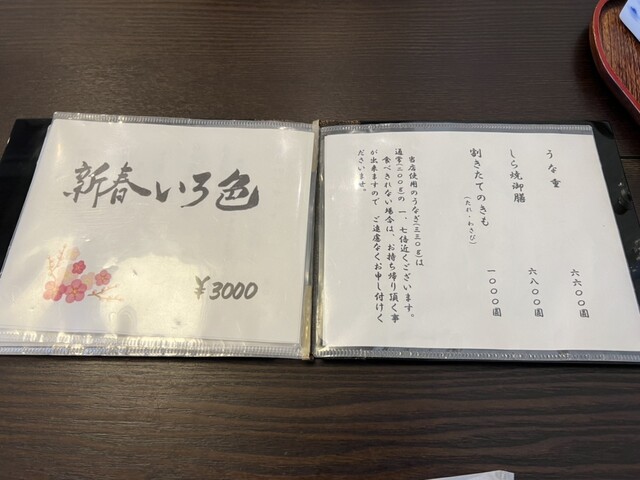 新春いろ色
¥3000
うな重 六六〇〇圓
しら焼御膳 六八〇〇圓
割きたてのきも 一〇〇〇圓
(たれ・わさび)
当店使用のうなぎ(三三〇g)は
通常(二〇〇g)の 一、七倍近くございます。
食べきれない場合は、お持ち帰り頂く事
が出来ますので ご遠慮なくお申し付けく
ださいませ。